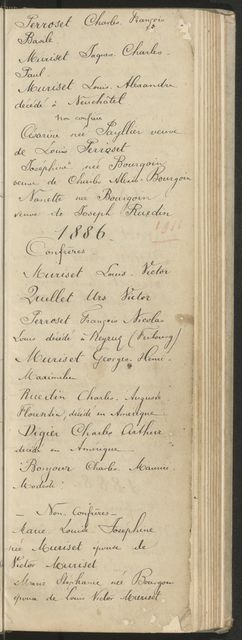 Perroset Charles François
Basile
Muriset Jaques Charles
Paul
Muriset Louis Alexandre
décédé à Neuchâtel
non confrère
Césarine née Sayllier veuve
de Louis Perroset
Joséphine née Bourgoin
veuve de Charles Alexis Bourgoin
Nanette née Bourgoin
veuve de Joseph Ruedin
1886
Confrères
Muriset Louis Victor
Quillet Urs Victor
Perroset François Nicolas
Louis décédé à (Fribourg)
Muriset Georges Henri
Maximilien
Ruedin Charles Auguste
Florentin, décédé en Amérique
Digier Charles Arthur
décédé en Amérique
Bonjour Charles Maurice
Modeste
— Non Confrères —
Marie Louise Joséphine
née Muriset épouse de
Victor Muriset
Marie Stéphanie née Bourgoin
épouse de Louis Victor Muriset